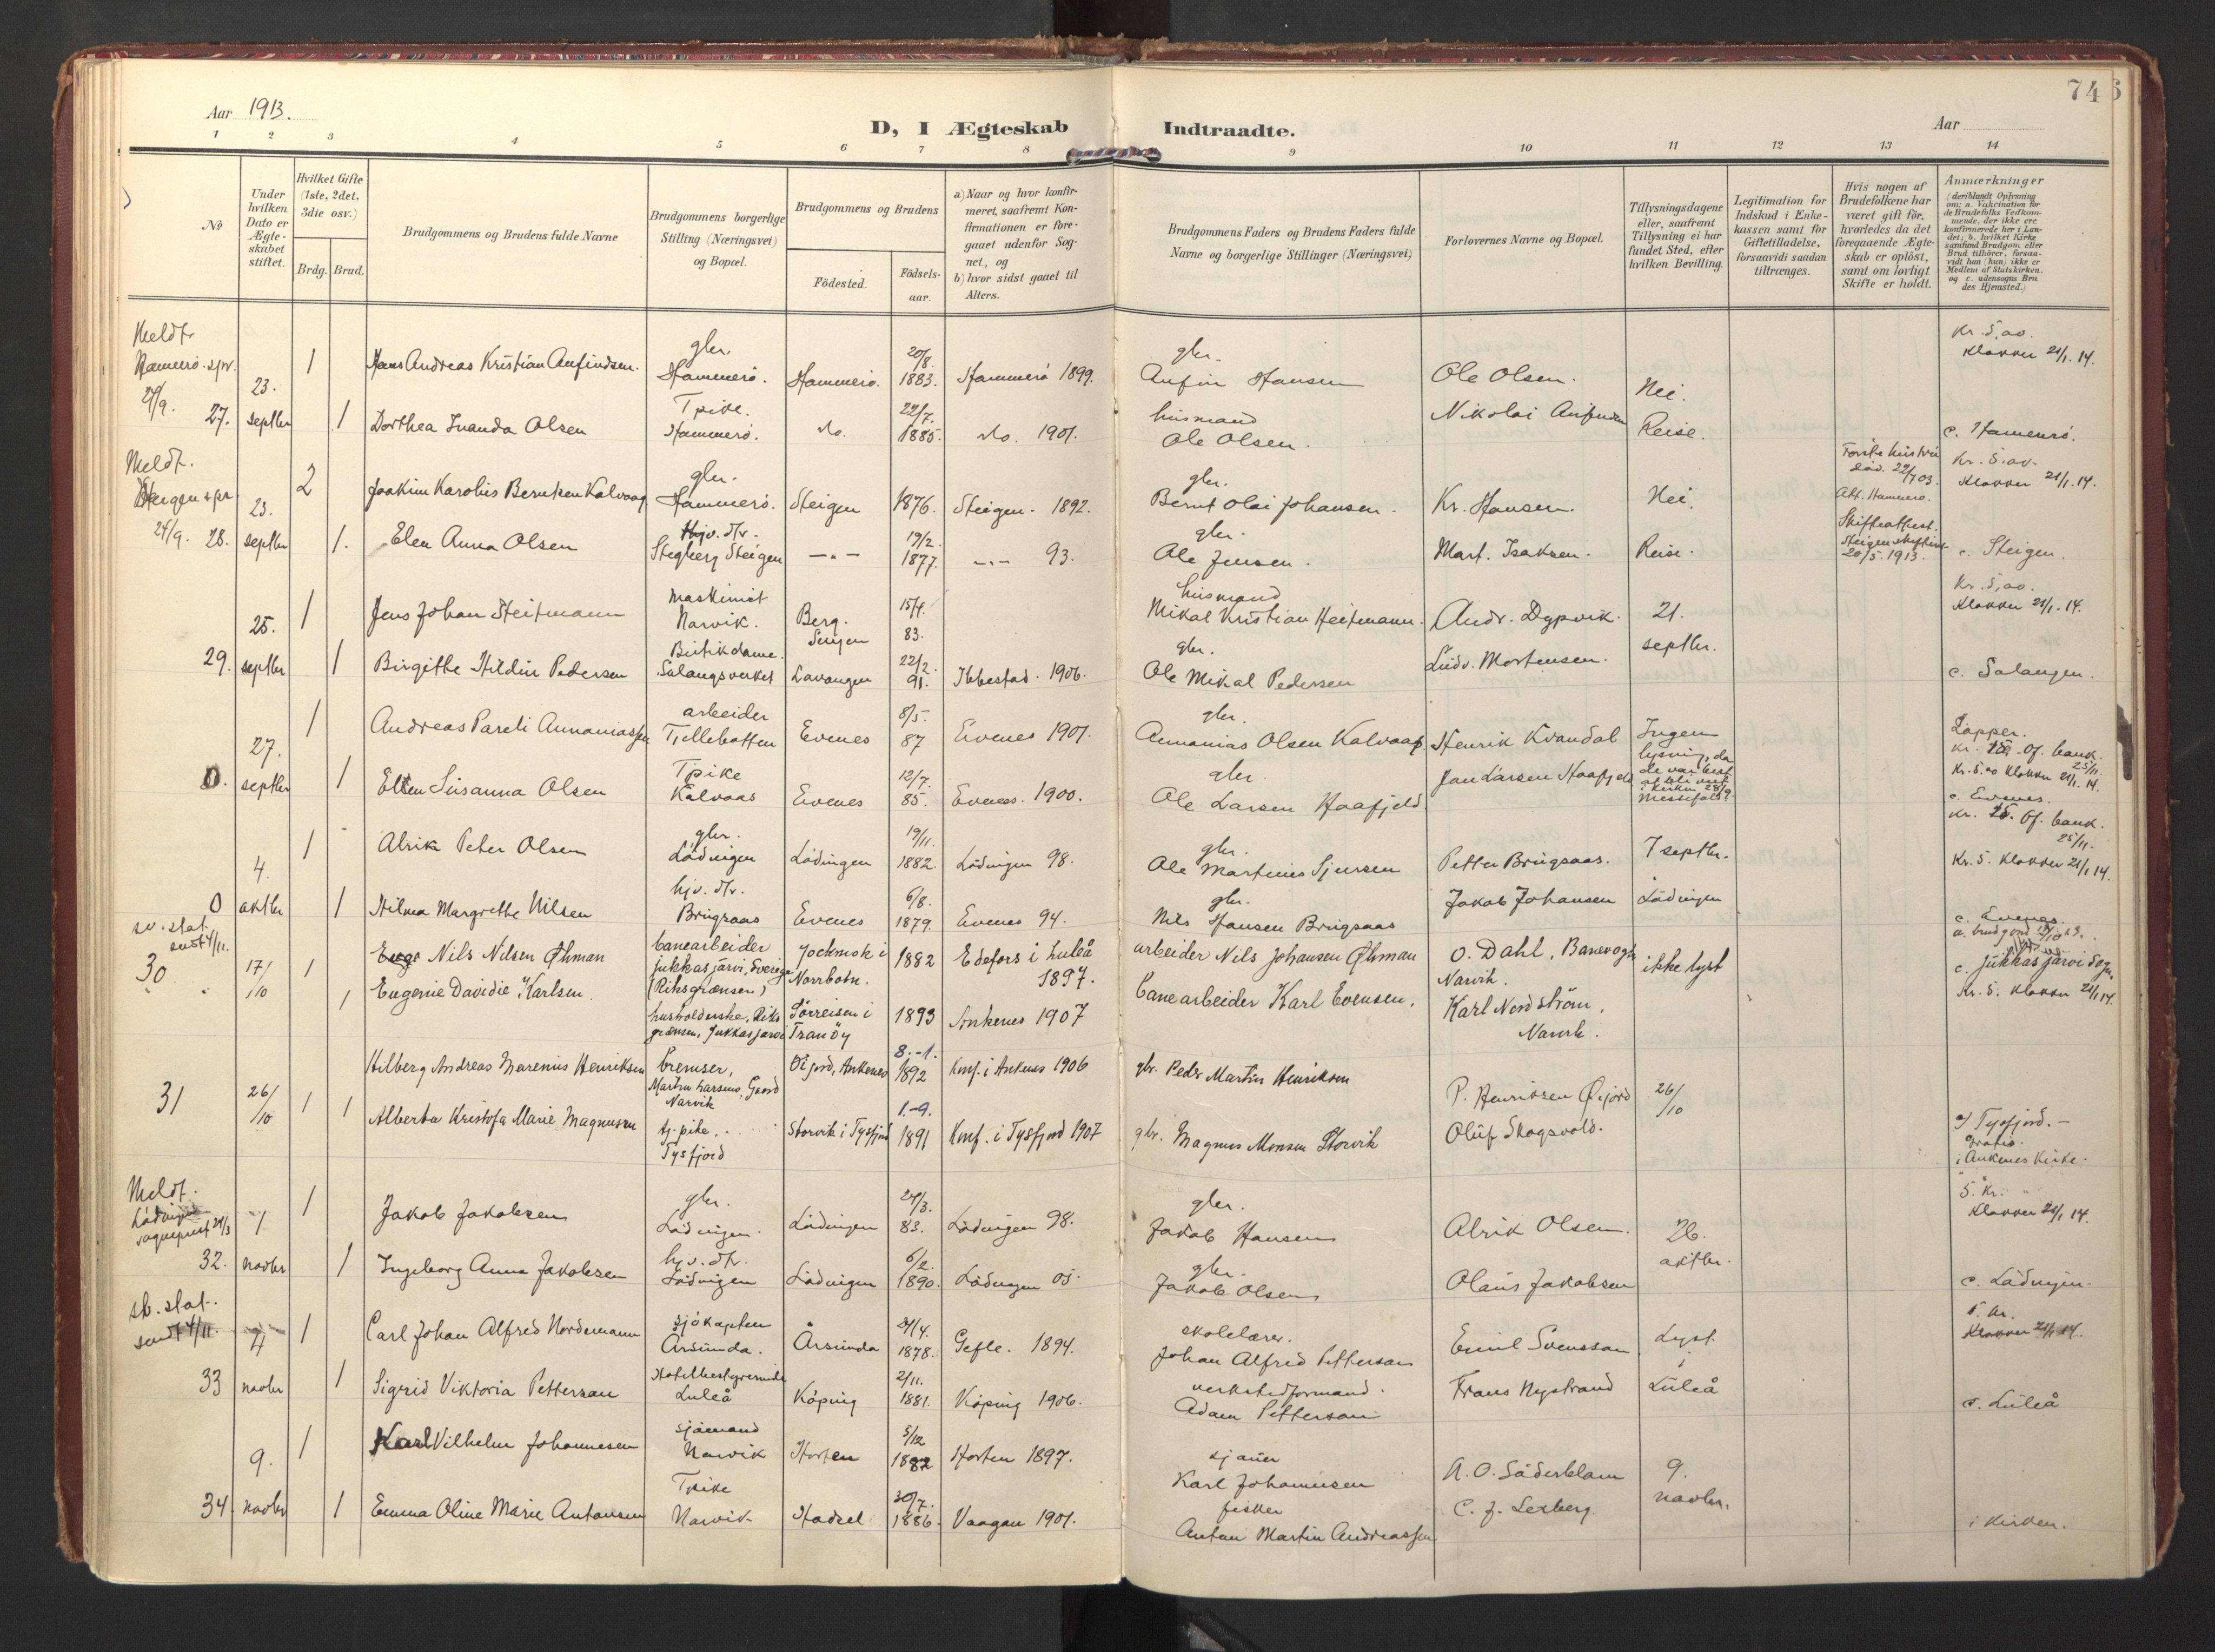 74
Aar 1913.
D, I Ægteskab Indtraadte.
Aar
1 2 3 4 5 6 7 8 9 10 11 12 13 14
№
Under hvilken Dato er Ægte-skabet stiftet.
Hvilket Gifte (1ste, 2det, 3die osv.)
Brdg. Brud.
Brudgommens og Brudens fulde Navne
Brudgommens borgerlige Stilling (Næringsvei) og Bopæl.
Brudgommens og Brudens
Födested.
Födsels-aar.
a) Naar og hvor konfir-meret, saafremt Kon-firmationen er fore-gaaet udenfor Sog-net, og
b) hvor sidst gaaet til Alters.
Brudgommens Faders og Brudens Faders fulde Navne og borgerlige Stillinger (Næringsvei)
Forlovernes Navne og Bopæl.
Tillysningsdagene eller, saafremt Tillysning ei har fundet Sted, efter hvilken Bevilling.
Legitimation for Indskud i Enke-kassen samt for Giftetilladelse, forsaavidt saadan tiltrænges.
Hvis nogen af Brudefolkene har været gift för, hvorledes da det foregaaende Ægte-skab er oplöst, samt om lovligt Skifte er holdt.
Anmærkninger
(deriblandt Oplysning om: a. Vakcination for de Brudefolks Vedkom-mende, der ikke ere konfirmerede her i Lan-det; b. hvilket Kirke-samfund Brudgom eller Brud tilhörer, forsaa-vidt han (hun) ikke er Medlem af Statskirken, og c. udensogns Bru-des Hjemsted.)
Meldt
Hammerö. spr.
24/9. 27.
23. septbr
1 Hans Andreas Kristian Anfindsen. gbr. Hammerö. Hammerö. 20/8. 1883. Hammerö 1899. gbr. Anfin Hansen Ole Olsen. Nei. Kr. 5, av. Klokker 21/1. 14.
1 Dorthea Ivanda Olsen Tpike. Hammerö. do. 22/7. 1885. do. 1901. husmand Ole Olsen. Nikolai Anfinden Reise. c. Hammerö.
Meldt.
Steigen spr
24/9. 28.
23. septbr
2 Joakim Karolius Berntsen Kalvaag gbr. Hammerö. Steigen 1876. Steigen - 1892. gbr. Bernt Olai Johansen. Kr. Hansen. Nei. Förste hustru död. 22/7 03. Att. Hammerö. Kr. 5. av. Klokker 21/1. 14.
1. Elen Anna Olsen hjv. dtr. Stegberg Steigen -"- 19/2. 1877. -"- 93. gbr. Ole Jensen. Mart. Isaksen. Reise. Skifteattest. Steigen 20/5. 1913. c. Steigen.
29. 25. septbr
1 Jens Johan Heitmann maskinist Narvik. Berg. Senjen 15/4. 83. husmand Mikal Kristian Heitmann. Andr. Dypvik. 21. septbr. Kr. 5, av. Klokker 21/1. 14.
1 Birgithe Hildur Pedersen Butikdame. Salangsverket Lavangen 22/2. 91. Ibbestad. 1906. gbr. Ole Mikal Pedersen Ludv. Mortensen. c. Salangen.
0. 27. septbr
1 Andreas Pareli Annaniassen arbeider Tjellebotten Evenes 8/5. 87 Evenes 1901. gbr. Annanias Olsen Kalvaas Henrik Kvandal Ingen lysning, da Lapper. Kr. 5 av Klokker 21/1. 14.
1 Ellen Susanna Olsen Tpike Kalvaas Evenes 12/7. 85. Evenes. 1900. gbr. Ole Larsen Haafjeld Jan Larsen Haafjeld c. Evenes.
0 4. oktbr
1 Alrik Peter Olsen gbr. Lödingen Lödingen 19/11. 1882. Lödingen 98. gbr. Ole Martinus Sjursen Petter Brugsaas. 7 septbr. 25/11. Kr. 5. Klokker 21/1 14.
1 Hilma Margrethe Nilsen hjv. dtr. Brugsaas Evenes 6/8. 1879. Evenes 94. gbr. Nils Hansen Brugsaas Jakob Johansen Lödingen c. Evenes.
sv. stat. sendt 4/11.
30 17/10
1 Nils Nilsen Øhman banearbeider jukkasjärvi, Sverige (Riksgrænsen) Jockmok i Norrbotn. 1882 Edefors i Luleå 1897. arbeider Nils Johansen Øhman O. Dahl, Banevogt Narvik. ikke lyst c. Jukkasjärvi Sogn
1 Eugenie Davidie Karlsen. husholderske, Riksgrænsen, Jukkasjärvi Tørreisen i Tranöy 1893 Ankenes 1907 banearbeider Karl Evensen. Karl Nordström, Narvik. Kr. 5. klokker 21/1 14.
31 26/10
1 Hilberg Andreas Marenius Henriksen bremser, Martin Larsens, Gaard Narvik Øijord, Ankenes 8.-1. 1892 Konf. i Ankenes 1906 gbr. Peder Martin Henriksen P. Henriksen Øijord 26/10
1 Alberta Kristofa Marie Magnussen tj. pike. Tysfjord Storvik i Tysfjord 1.-9. 1891 Konf. i Tysfjord 1907 gbr. Magnus Monsen Storvik Oluf Skogsvold. c/ Tysfjord. - Gratis. i Ankenes Kirke.
Meldt. Lödingen sogneprest 24/3
32. 1 novbr
1 Jakob Jakobsen gbr. Lödingen. Lödingen 24/3. 83. Lödingen 98. gbr. Jakob Hansen Alrik Olsen. 26. oktbr. 5. kr. Klokker 21/1 14.
1 Ingeborg Anna Jakobsen hjv. dtr. Lödingen Lödingen 6/2. 1890. Lödingen 05. gbr. Jakob Olsen Olaus Jakobsen c. Lödingen.
sv. stat. sendt 4/11.
33 4 novbr
1 Carl Johan Alfred Nordemann sjökapten Årsunda. Årsunda 24/4. 1878. Gefle. 1894. skolelærer. Johan Alfred Petterson Emil Svensson Lyst i Luleå 5. kr. Klokker 21/1 14.
1 Sigrid Viktoria Petterson Hotelbestyrerinde Luleå Köping 2/11. 1881. Köping 1906. verkstedformand. Adam Petterson Frans Nystrand c. Luleå
34. 9. novbr
1 Karl Vilhelm Johannesen sjömand Narvik Horten 5/12 1882 Horten 1897. sjauer Karl Johannesen A. O. Söderblom 9. novbr.
1 Emma Oline Marie Antonsen Tpike Narvik Hadsel 30/7. 1886. Vaagan 1901. fisker Anton Martin Andreassen C. J. Lexberg. i Kirken.